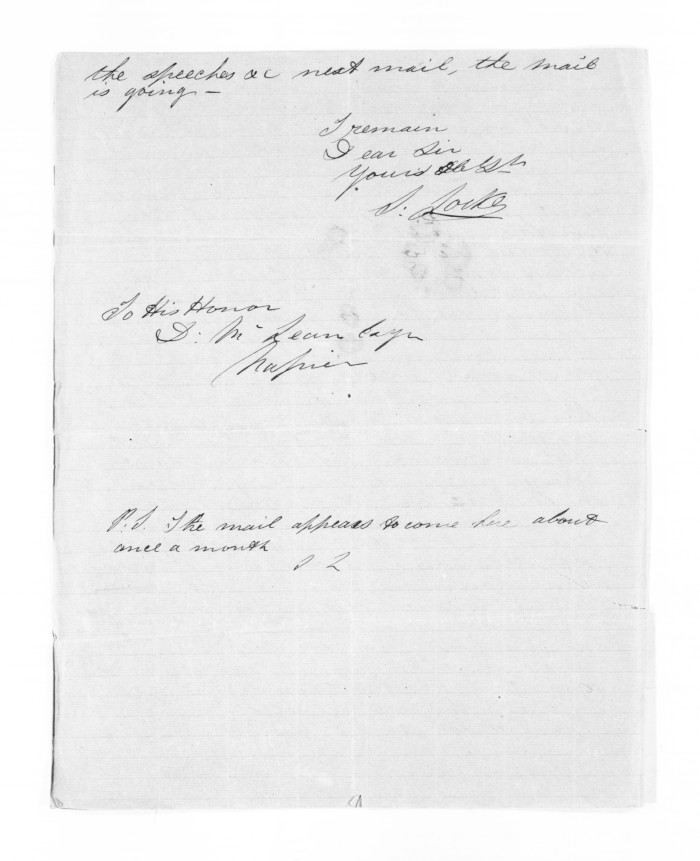 the speeches &c next mail, the mail
is going –
I remain
Dear Sir
Yours
S: Locke
To His Honor
D: McLean Esqr
Napier
P.S. The mail appears to come here about
once a month
S L